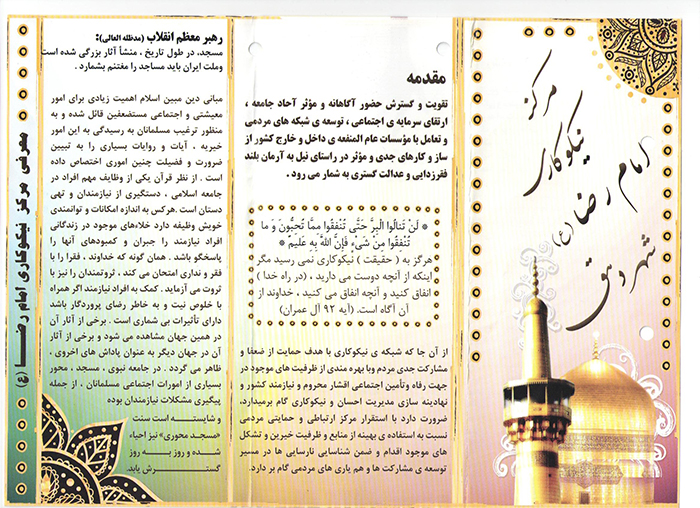 مرکز
نیکوکاری
امام رضا (ع)
شهر دستق
مقدمه
تقویت و گسترش حضور آگاهانه و مؤثر آحاد جامعه ،
ارتقای سرمایه ی اجتماعی ، توسعه ی شبکه های مردمی
و تعامل با مؤسسات عام المنفعه ی داخل و خارج کشور از
ساز و کارهای جدی و مؤثر در راستای نیل به آرمان بلند
فقرزدایی و عدالت گستری به شمار می رود .
* لَنْ تَنالُوا الْبِرَّ حَتَّى تُنْفِقُوا مِمَّا تُحِبُّونَ وَ ما
تُنْفِقُوا مِنْ شَيْءٍ فَإِنَّ اللَّهَ بِهِ عَلِيمٌ *
هرگز به ( حقیقت ) نیکوکاری نمی رسید مگر
اینکه از آنچه دوست می دارید ، (در راه خدا )
انفاق کنید و آنچه انفاق می کنید ، خداوند از
آن آگاه است. (آیه ۹۲ آل عمران)
از آن جا که شبکه ی نیکوکاری با هدف حمایت از ضعفا و
مشارکت جدی مردم وبا بهره مندی از ظرفیت های موجود در
جهت رفاه وتأمین اجتماعی اقشار محروم و نیازمند کشور و
نهادینه سازی مدیریت احسان و نیکوکاری گام برمیدارد،
ضرورت دارد با استقرار مرکز ارتباطی و حمایتی مردمی
نسبت به استفاده ی بهینه از منابع و ظرفیت خیرین و تشکل
های موجود اقدام و ضمن شناسایی نارسایی ها در مسیر
توسعه ی مشارکت ها و هم یاری های مردمی گام بر دارد.
رهبر معظم انقلاب (مدظله العالی):
مسجد، در طول تاریخ ، منشأ آثار بزرگی شده است
وملت ایران باید مساجد را مغتنم بشمارد .
مبانی دین مبین اسلام اهمیت زیادی برای امور
معیشتی و اجتماعی مستضعفین قائل شده و به
منظور ترغیب مسلمانان به رسیدگی به این امور
خیریه ، آیات و روایات بسیاری را به تبیین
ضرورت و فضیلت چنین اموری اختصاص داده
است . از نظر قرآن یکی از وظایف مهم افراد در
جامعه اسلامی ، دستگیری از نیازمندان و تهی
دستان است .هرکس به اندازه امکانات و توانمندی
خویش وظیفه دارد خلاءهای موجود در زندگانی
افراد نیازمند را جبران و کمبودهای آنها را
پاسخگو باشد . همان گونه که خداوند ، فقرا را با
فقر و نداری امتحان می کند ، ثروتمندان را نیز با
ثروت می آزماید . کمک به افراد نیازمند اگر همراه
با خلوص نیت و به خاطر رضای پروردگار باشد
دارای تأثیرات بی شماری است . برخی از آثار آن
در همین جهان مشاهده می شود و برخی از آثار
آن در جهان دیگر به عنوان پاداش های اخروی ،
ظاهر می گردد . در جامعه نبوی ، مسجد ، محور
بسیاری از امورات اجتماعی مسلمانان ، از جمله
پیگیری مشکلات نیازمندان بوده
و شایسته است سنت
«مسجد محوری» نیز احیاء
شده و روز به روز
گسترش یابد.
معرفی مرکز نیکوکاری امام رضا (ع)